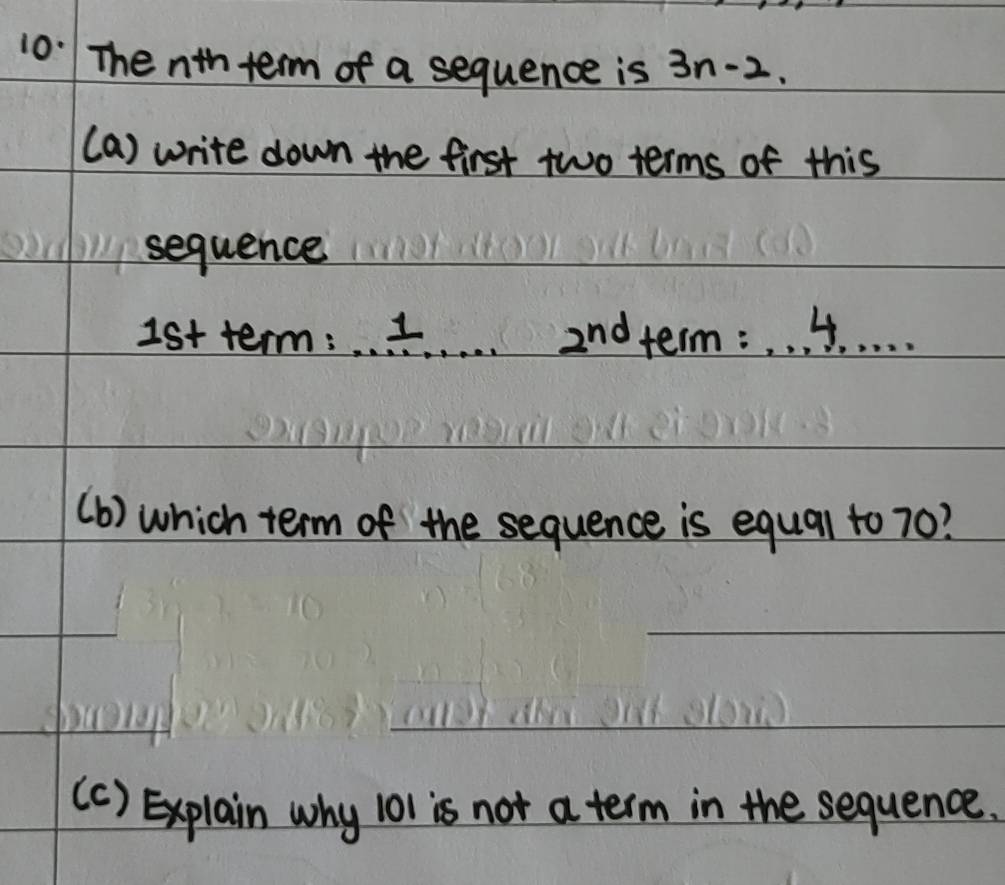 10. The nth term of a sequence is 3n-2.
(a) write down the first two terms of this
sequence
1st term: ....1.... 2nd term: ...4.....
(b) which term of the sequence is equal to 70?
(c) Explain why 101 is not a term in the sequence.